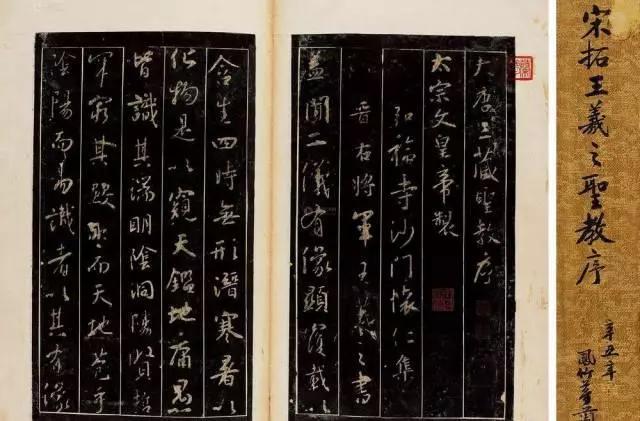 宋拓王羲之聖教序
辛丑年
大唐三藏聖教序
太宗文皇帝製
弘福寺沙門懷仁集
晉右將軍王羲之書
蓋聞二儀有像顯覆載以
含生四時無形潛寒暑以
化物是以窺天鑑地庸愚
皆識其端明陰洞陽賢哲
罕窮其數然而天地苞乎
陰陽而易識者以其有像